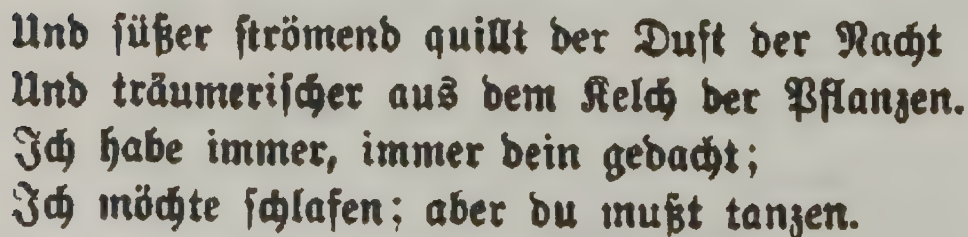 Und süßer strömend quillt der Duft der Nacht
Und träumerischer aus dem Kelch der Pflanzen.
Ich habe immer, immer dein gedacht;
Ich möchte schlafen; aber du mußt tanzen.